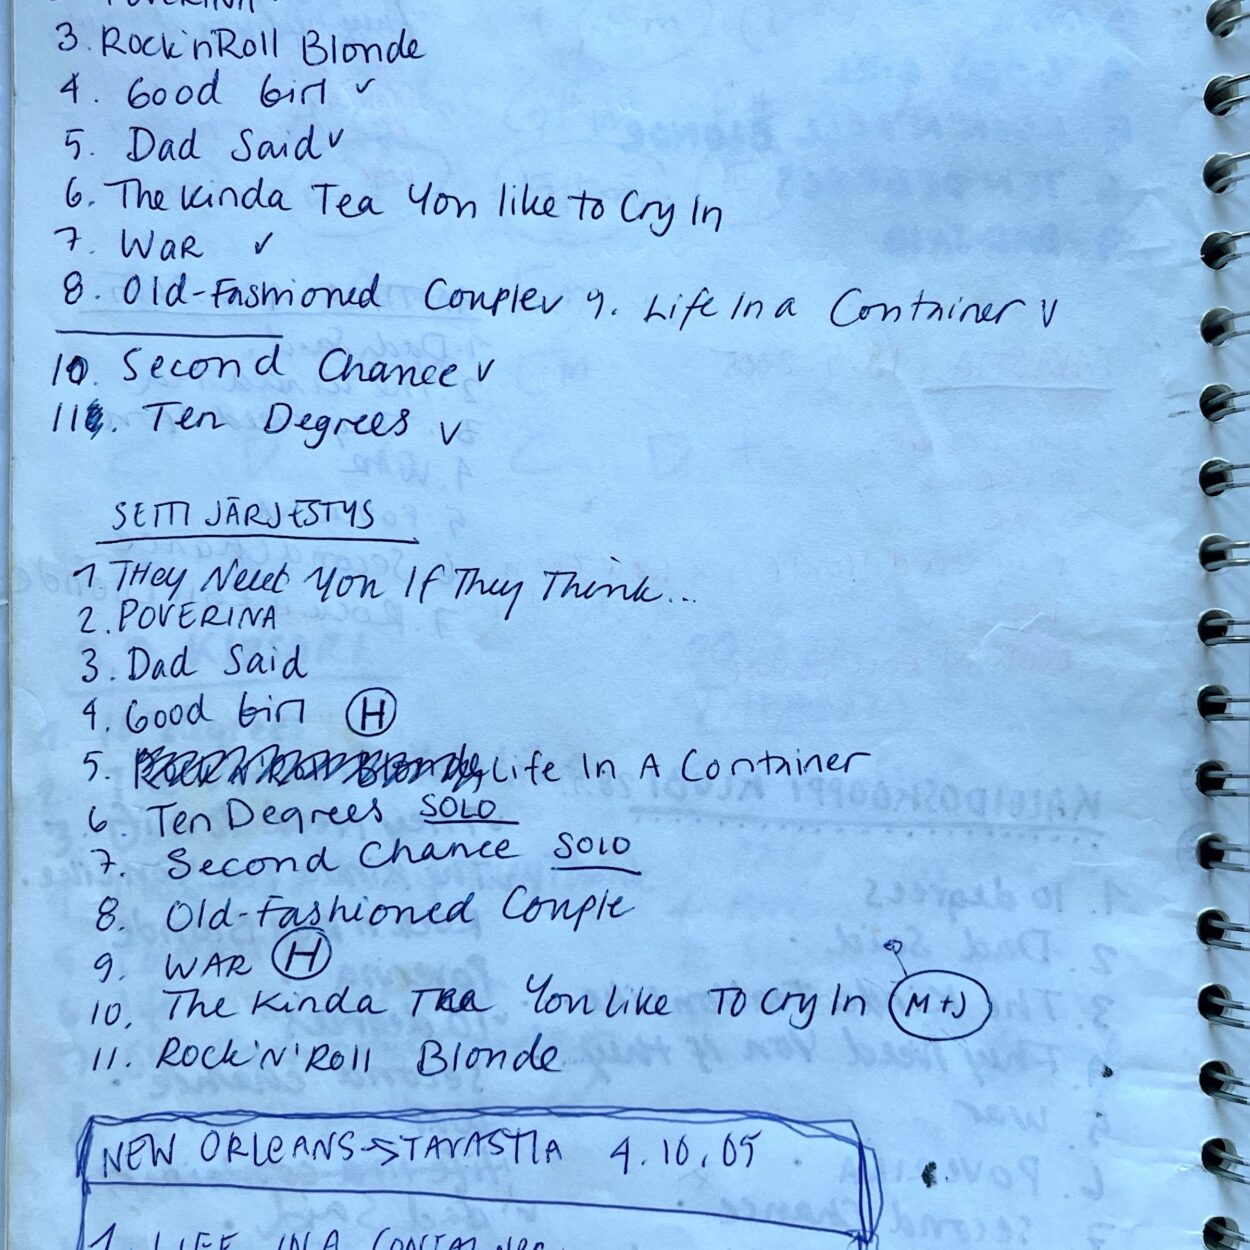 POVERINA
3. Rock'n'Roll Blonde
4. Good Girl ✓
5. Dad Said ✓
6. The Kinda Tea You like to Cry In
7. WAR ✓
8. Old-Fashioned Couple ✓ 9. Life In a Container ✓
10. Second Chance ✓
11. Ten Degrees ✓
SETTI JÄRJESTYS
1. They Need You If They Think...
2. POVERINA
3. Dad Said
4. Good Girl (H)
5. Rock'n'Roll Blonde Life In A Container
6. Ten Degrees SOLO
7. Second Chance SOLO
8. Old-Fashioned Couple
9. WAR (H)
10. The Kinda Tea You Like To Cry In (M+J)
11. Rock'N'Roll Blonde
NEW ORLEANS → TAVASTIA 4.10.05
1. LIFE IN A CONTAINER